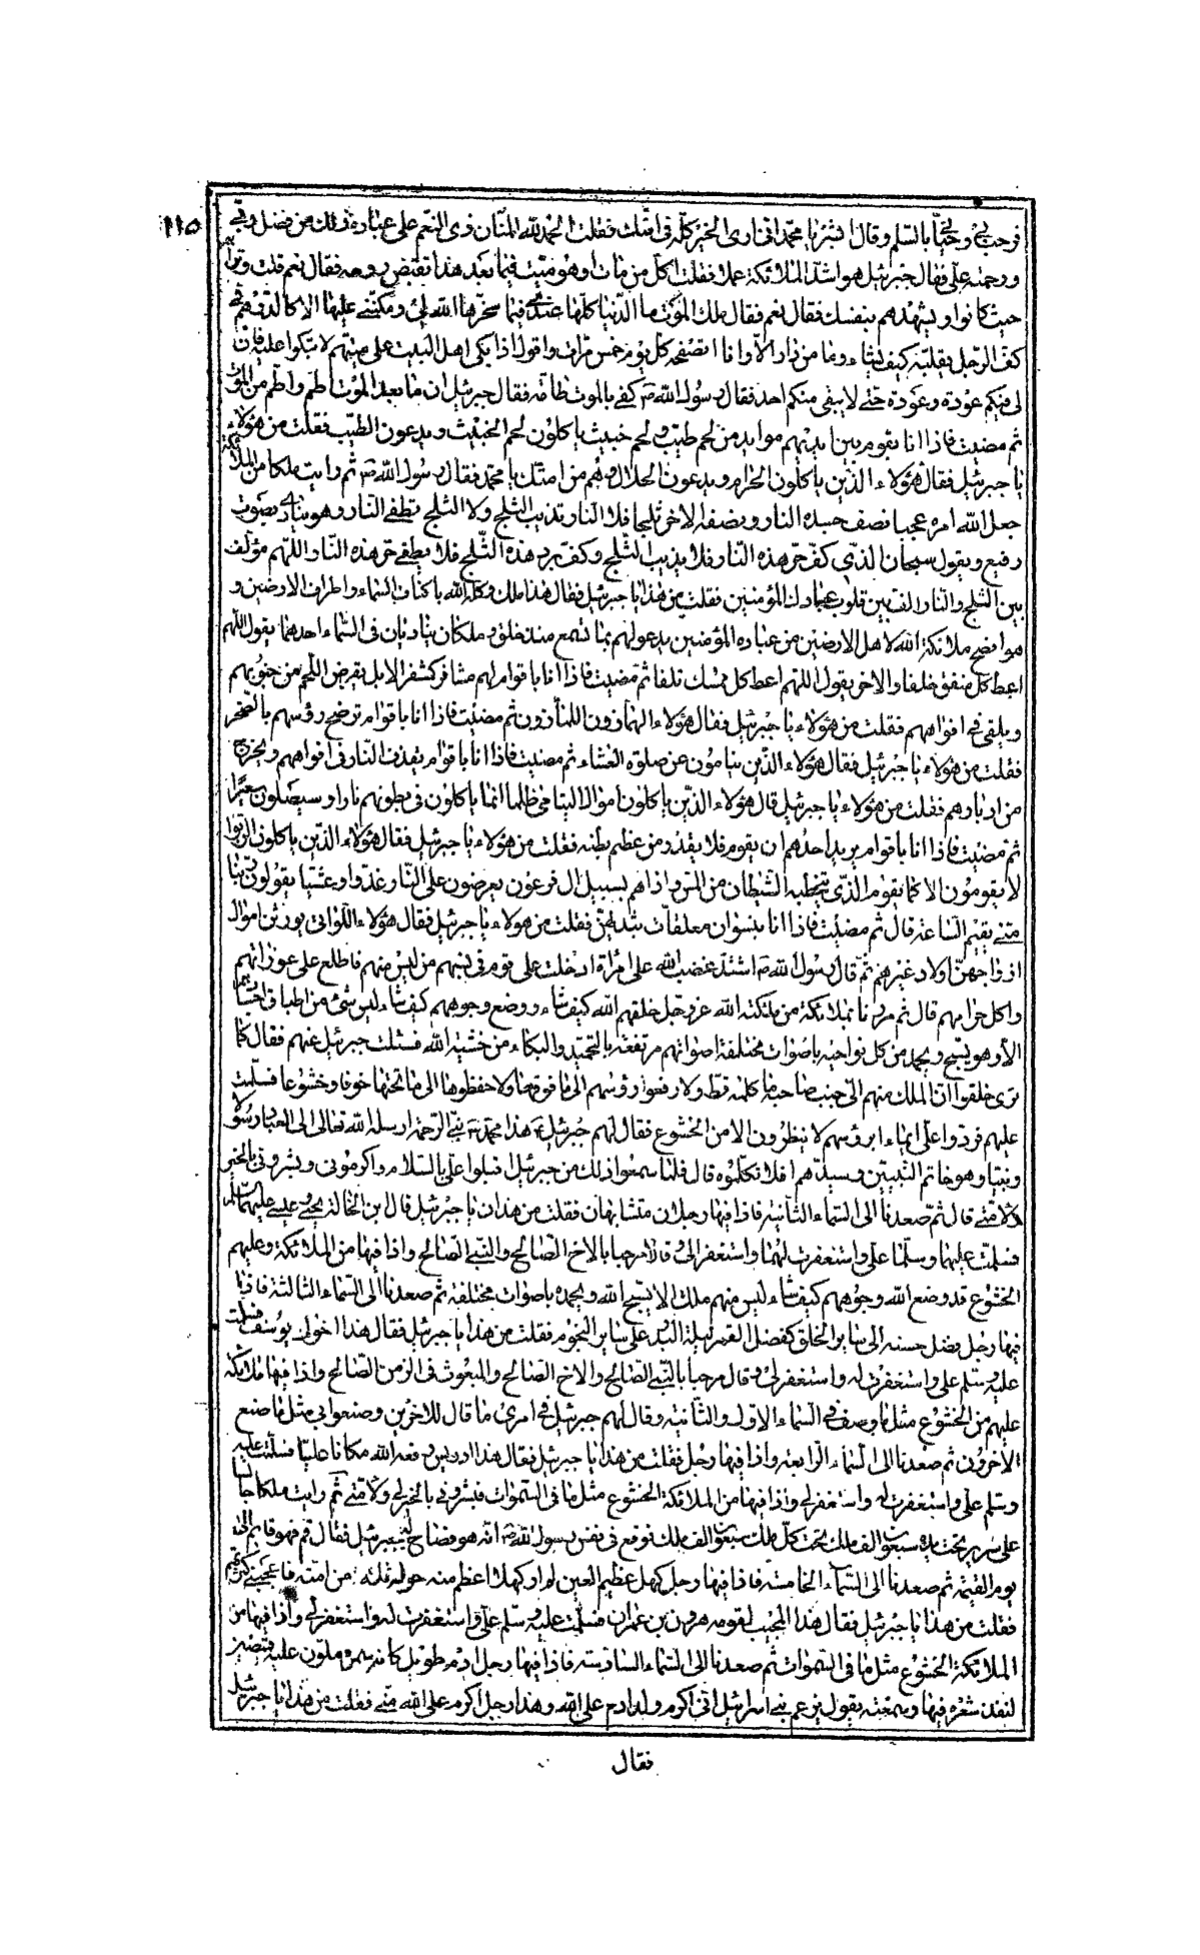 ١١٥
فرحب بي وحياني بالسلم وقال ابشر يا محمد اني ارى الخير كله في امتك فقلت الحمد لله المنان ذي النعم على عباده ذلك من فضل ربي
ورحمته علي فقال جبرئيل هو اشد الملائكة عملا فقلت اكل من مات او هو ميت فيما بعد هذا تقبض روحه فقال نعم قلت وتراهم
حيث كانوا وتشهدهم بنفسك فقال نعم فقال ملك الموت ما الدنيا كلها عندي فيما سخرها الله لي ومكنني عليها الا كالدرهم في
كف الرجل يقلبه كيف يشاء وما من دار الا وانا اتصفحه كل يوم خمس مرات واقول اذا بكى اهل البيت على ميتهم لا تبكوا عليه فان
لي فيكم عودة وعودة حتى لا يبقى منكم احد فقال رسول الله ص كفى بالموت طامة فقال جبرئيل ان ما بعد الموت اطم واطم من الموت
ثم مضيت فاذا انا بقوم بين ايديهم موايد من لحم طيب ولحم خبيث ياكلون لحم الخبيث ويدعون الطيب فقلت من هؤلاء
يا جبرئيل فقال هؤلاء الذين ياكلون الحرام ويدعون الحلال وهم من امتك يا محمد فقال رسول الله ص ثم رايت ملكا من الملائكة
جعل الله امره عجبا نصف جسده النار ونصفه الاخر ثلجا فلا النار تذيب الثلج ولا الثلج تطفي النار وهو ينادي بصوت
رفيع ويقول سبحان الذي كف حر هذه النار فلا يذيب الثلج وكف برد هذه الثلج فلا يطفي حر هذه النار اللهم مؤلف
بين الثلج والنار الف بين قلوب عبادك المؤمنين فقلت من هذا يا جبرئيل فقال هذا ملك وكله الله باكناف السماء واطراف الارضين و
هو انصح ملائكة الله لاهل الارضين من عباده المؤمنين يدعو لهم بما تسمع منذ خلق وملكان يناديان في السماء احدهما يقول اللهم
اعط كل منفق خلفا والاخر يقول اللهم اعط كل ممسك تلفا ثم مضيت فاذا انا باقوام لهم مشافر كمشفر الابل يقرض اللحم من جنوبهم
ويلقى في افواههم فقلت من هؤلاء يا جبرئيل فقال هؤلاء الهمازون اللمازون ثم مضيت فاذا انا باقوام ترضخ رؤسهم بالصخر
فقلت من هؤلاء يا جبرئيل فقال هؤلاء الذين ينامون عن صلوة العشاء ثم مضيت فاذا انا باقوام يقذف النار في افواههم ويخرج
من ادبارهم فقلت من هؤلاء يا جبرئيل قال هؤلاء الذين ياكلون اموال اليتامى ظلما انما ياكلون في بطونهم نارا وسيصلون سعيرا
ثم مضيت فاذا انا باقوام يريد احدهم ان يقوم فلا يقدر من عظم بطنه فقلت من هؤلاء يا جبرئيل فقال هؤلاء الذين ياكلون الربوا
لا يقومون الا كما يقوم الذي يتخبطه الشيطان من المس واذا هم بسبيل ال فرعون يعرضون على النار غدوا وعشيا يقولون ربنا
متى يقيم الساعة قال ثم مضيت فاذا انا بنسوان معلقات بثديهن فقلت من هؤلاء يا جبرئيل فقال هؤلاء اللواتي يورثن اموال
ازواجهن اولاد غيرهم ثم قال رسول الله ص اشتد غضب الله على امراة ادخلت على قوم في نسبهم من ليس منهم فاطلع على عوراتهم
واكل خزائنهم قال ثم مررنا بملائكة من ملئكة الله عز وجل خلقهم الله كيف شاء ووضع وجوههم كيف شاء ليس شيء من اطباق اجسادهم
الا وهو يسبح ويحمد من كل ناحيه باصوات مختلفة اصواتهم مرتفعة بالتحميد والبكاء من خشية الله فسئلت جبرئيل عنهم فقال كما
ترى خلقوا ان الملك منهم الى جنب صاحبه ما كلمه قط ولا رفعوا رؤسهم الى ما فوقها ولا خفظوها الى ما تحتها خوفا وخشوعا فسلمت
عليهم فردوا علي ايماء ابرؤسهم لا ينظرون الي من الخشوع فقال لهم جبرئيل هذا محمد ص نبي الرحمة ارسله الله تعالى الى العباد رسولا
ونبيا وهو خاتم النبيين وسيدهم افلا تكلموه قال فلما سمعوا ذلك من جبرئيل اقبلوا علي بالسلام واكرموني وبشروني بالخير
ولامتي قال ثم صعدنا الى السماء الثانية فاذا فيها رجلان متشابهان فقلت من هذان يا جبرئيل قال ابن الخالة يحيى وعيسى عليهما السلام
فسلمت عليهما وسلما علي واستغفرت لهما واستغفرا لي وقالا مرحبا بالاخ الصالح والنبي الصالح واذا فيها من الملائكة وعليهم
الخشوع قد وضع الله وجوههم كيف شاء ليس منهم ملك الا يسبح الله ويحمده باصوات مختلفة ثم صعدنا الى السماء الثالثة فاذا
فيها رجل فضل حسنه الى ساير الخلق كفضل القمر ليلة البدر على ساير النجوم فقلت من هذا يا جبرئيل فقال هذا اخوك يوسف فسلمت
عليه وسلم علي واستغفرت له واستغفر لي وقال مرحبا بالنبي الصالح والاخ الصالح والمبعوث في الزمن الصالح واذا فيها ملائكة
عليهم من الخشوع مثل ما وصف في السماء الاولى والثانية وقال لهم جبرئيل في امري ما قال للاخرين وصنعوا بي مثل ما صنع
الاخرون ثم صعدنا الى السماء الرابعة واذا فيها رجل فقلت من هذا يا جبرئيل فقال هذا ادريس رفعه الله مكانا عليا فسلمت عليه
وسلم علي واستغفرت له واستغفر لي واذا فيها من الملائكة الخشوع مثل ما في السموات فبشروني بالخير لي ولامتي ثم رايت ملكا جالسا
على سرير تحت يده سبعون الف ملك تحت كل ملك سبعون الف ملك فوقع في نفس رسول الله ص انه هو فصاح به جبرئيل فقال قم فهو قايم الى
يوم القيمة ثم صعدنا الى السماء الخامسة فاذا فيها رجل كهل عظيم العين لم ار كهلا اعظم منه حوله ثلة من امته فاعجبني كثرتهم
فقلت من هذا يا جبرئيل فقال هذا المجيب لقومه هرون بن عمران فسلمت عليه وسلم علي واستغفرت له واستغفر لي واذا فيها من
الملائكة الخشوع مثل ما في السموات ثم صعدنا الى السماء السادسة فاذا فيها رجل ادم طويل كانه سمرة ولو ان عليه قميصين
لنفذ شعره فيها وسمعته يقول يزعم بني اسرائيل اني اكرم ولد ادم على الله وهذا رجل اكرم على الله مني فقلت من هذا يا جبرئيل
فقال